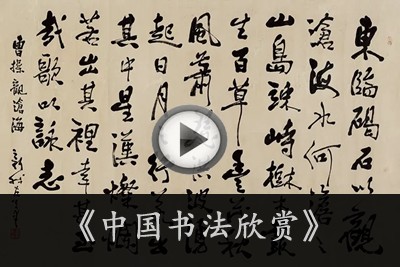 東臨碣石以觀
滄海水何澹〻
山島竦峙樹木叢
生百草豐茂秋
風蕭波湧
起日月行若
其中星漢燦爛
若出其裡幸甚至
哉歌以詠志
曹操觀滄海
《中国书法欣赏》